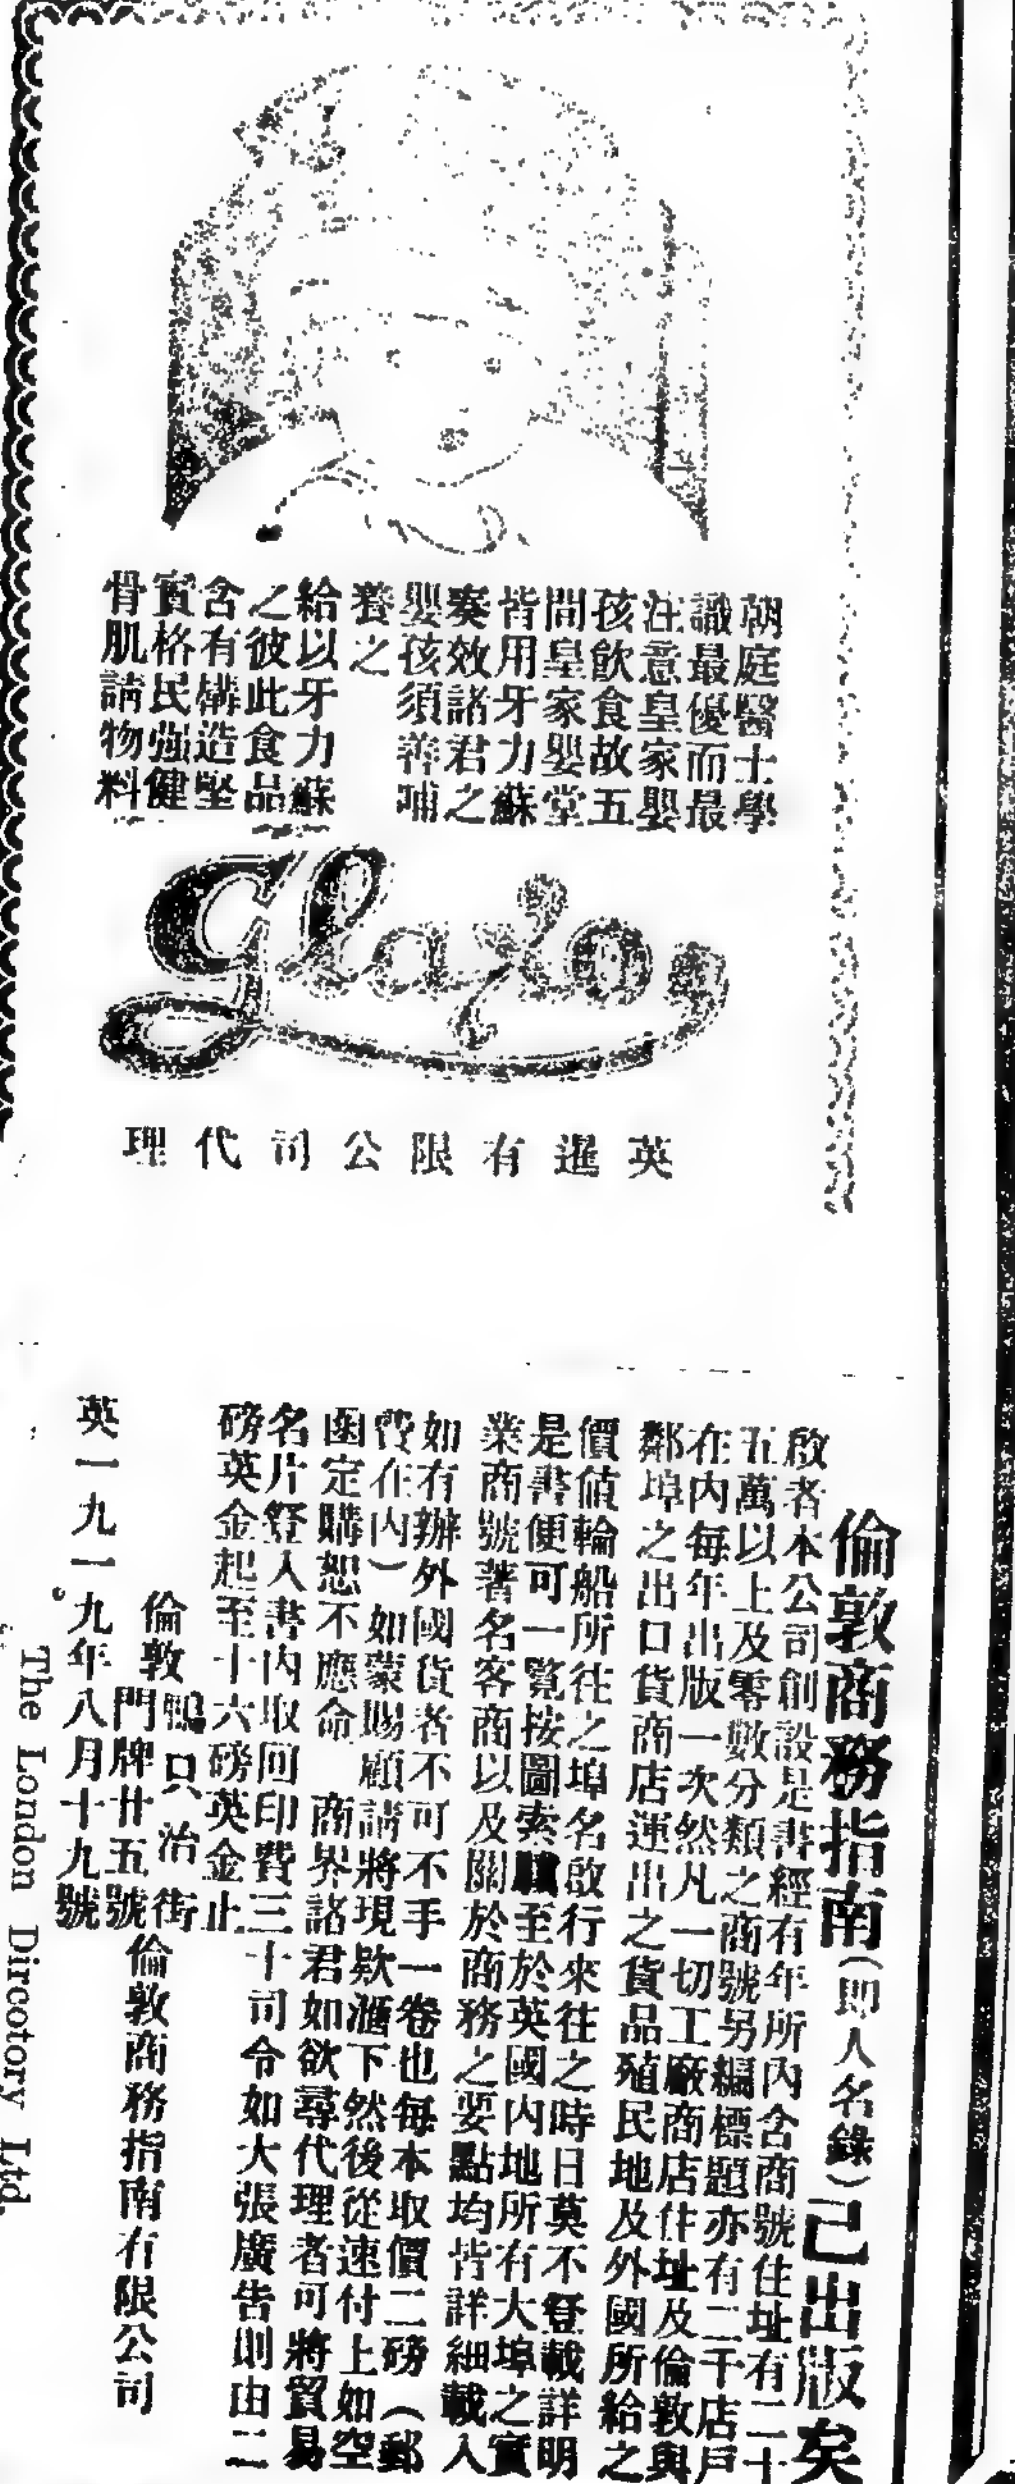 朝庭醫士學
識最優而最
注意皇家嬰
孩飲食故五
間皇家嬰堂
皆用牙力蘇
奏效諸君之
嬰孩須善哺
養之
給以牙力蘇
之彼此食品
含有構造堅
實格民强健
骨肌請物料
Glaxo
英暹有限公司代理
倫敦商務指南（即人名錄）己出版矣
啟者本公司創設是書經有年所內含商號住址有二十
五萬以上及零數分類之商號另編標題亦有二千店戶
在內每年出版一次然凡一切工廠商店住址及倫敦與
鄰埠之出口貨商店運出之貨品殖民地及外國所給之
價値輪船所往之埠名啟行來往之時日莫不登載詳明
是書便可一覽按圖索驥至於英國內地所有大埠之實
業商號著名客商以及關於商務之要點均皆詳細載入
如有辦外國貨者不可不手一卷也每本取價二磅（郵
費在內）如蒙賜顧請將現欵滙下然後從速付上如空
函定購恕不應命　商界諸君如欲尋代理者可將貿易
名片登入書內取回印費三十司令如大張廣告則由二
磅英金起至十六磅英金止
倫敦鴨只冶街
門牌廿五號
倫敦商務指南有限公司
英一九一九年八月十九號
The London Dircotory Ltd.